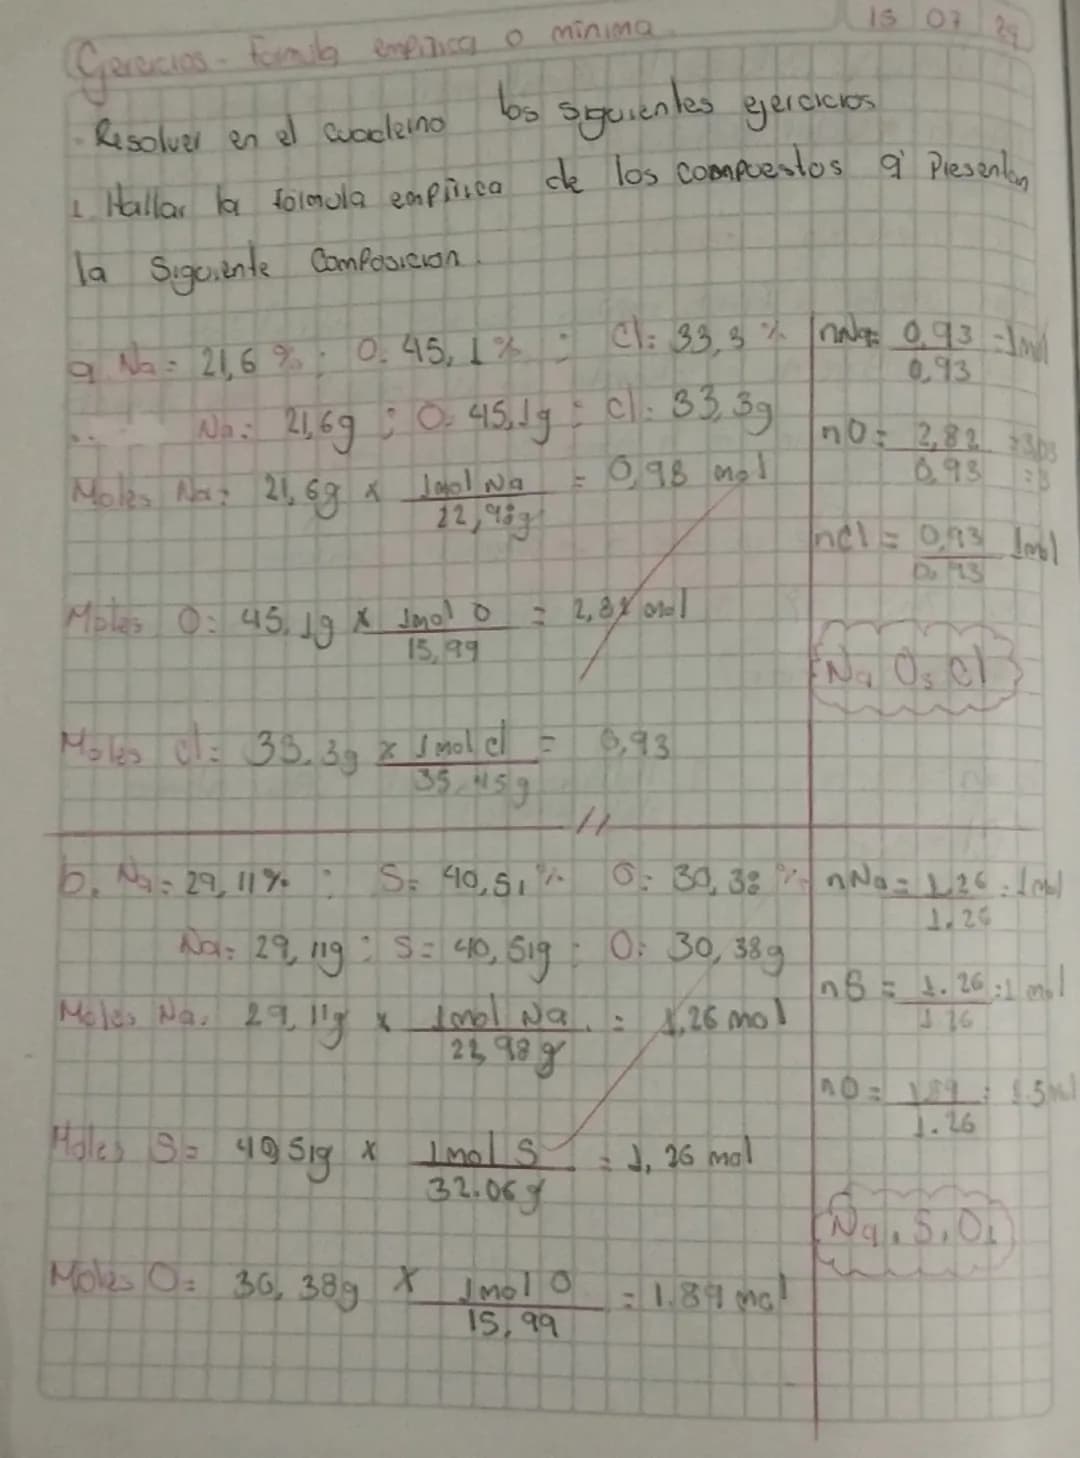 Gercicios - formula empirica o minima.
15 07 24
- Resolver en el cuaderno los siguientes ejercicios
1 Hallar la fórmula empírica de los compuestos q' Presentan
la Siguiente Composicion.
a Na = 21,6 % ; O. 45,1 % ; Cl: 33,3 %
Na: 21,6g ; O. 45,1g ; Cl: 33,3g
Moles Na: 21,6g x 1mol Na / 22,98g = 0,93 mol
Moles O: 45,1g x 1mol O / 15,99 = 2,82 mol
Moles Cl: 33.3g x 1mol cl / 35,45g = 0,93
nNa= 0,93 / 0,93 = 1mol
nO= 2,82 / 0,93 = 3,03 = 3
nCl = 0,93 / 0,93 1mol
Na O3 Cl
b. Na = 29,11% : S= 40,51 % O: 30,38 %
Na= 29,11g : S= 40,51g : O: 30,38g
Moles Na. 29,11g x 1mol Na / 22,98g = 1,26 mol
Moles S= 40,51g x 1mol S / 32.06g = 1,26 mol
Moles O= 30,38g x 1mol O / 15,99 = 1.89 mol
nNa= 1,26 / 1.26 = 1mol
nS = 1.26 / 1.26 = 1 mol
nO= 1,89 / 1.26 = 1.5mol
Na, S, O1